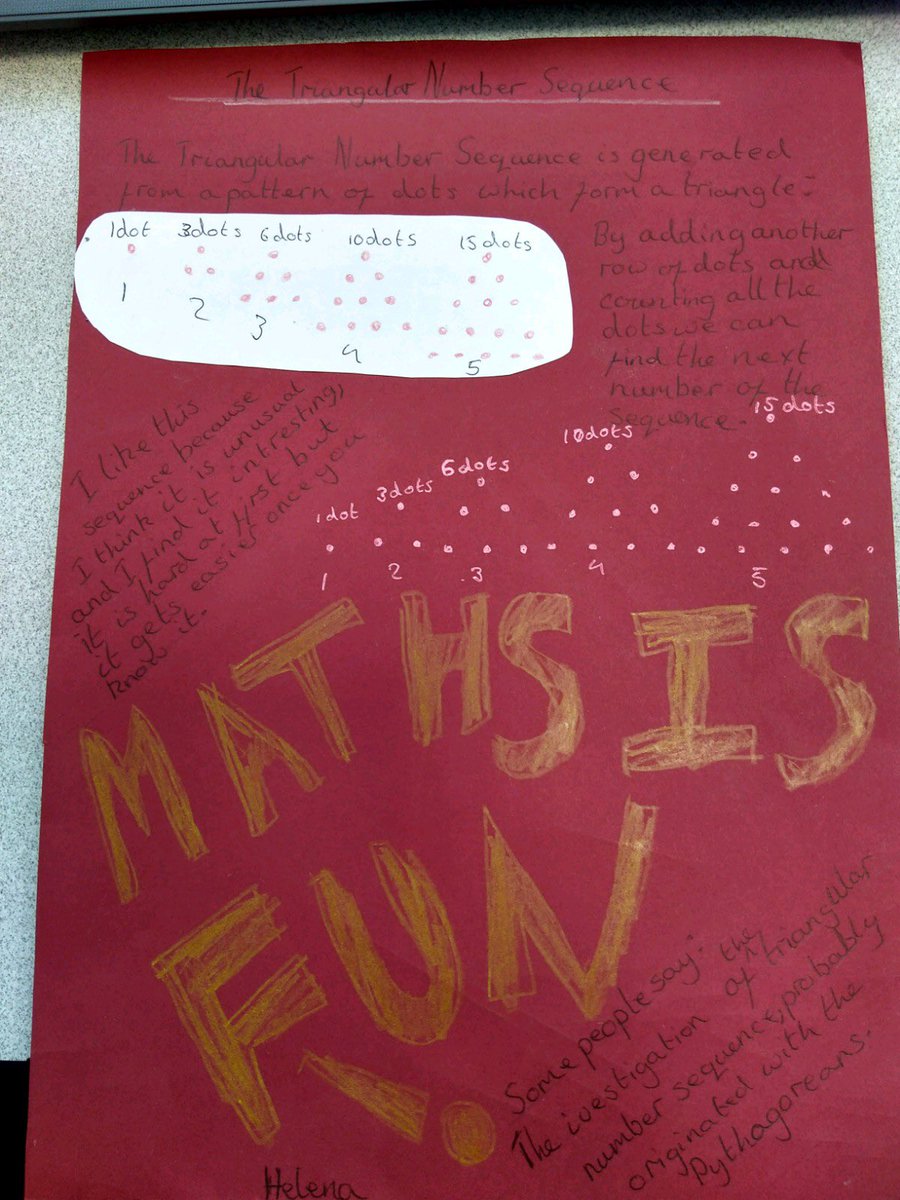 The Triangular Number Sequence
The Triangular Number Sequence is generated
from a pattern of dots which form a triangle:
1dot 3dots 6dots 10dots 15dots
1 2 3 4 5
By adding another
row of dots and
counting all the
dots we can
find the next
number of the
sequence.
I like this
sequence because
I think it is unusual
and I find it intresting,
it is hard at first but
it gets easier once you
know it.
1dot 3dots 6dots 10dots 15dots
1 2 3 4 5
MATHS IS
FUN!
Some people say: the
The ivestigation of triangular
number sequence, probably
originated with the
Pythagoreans.
Helena